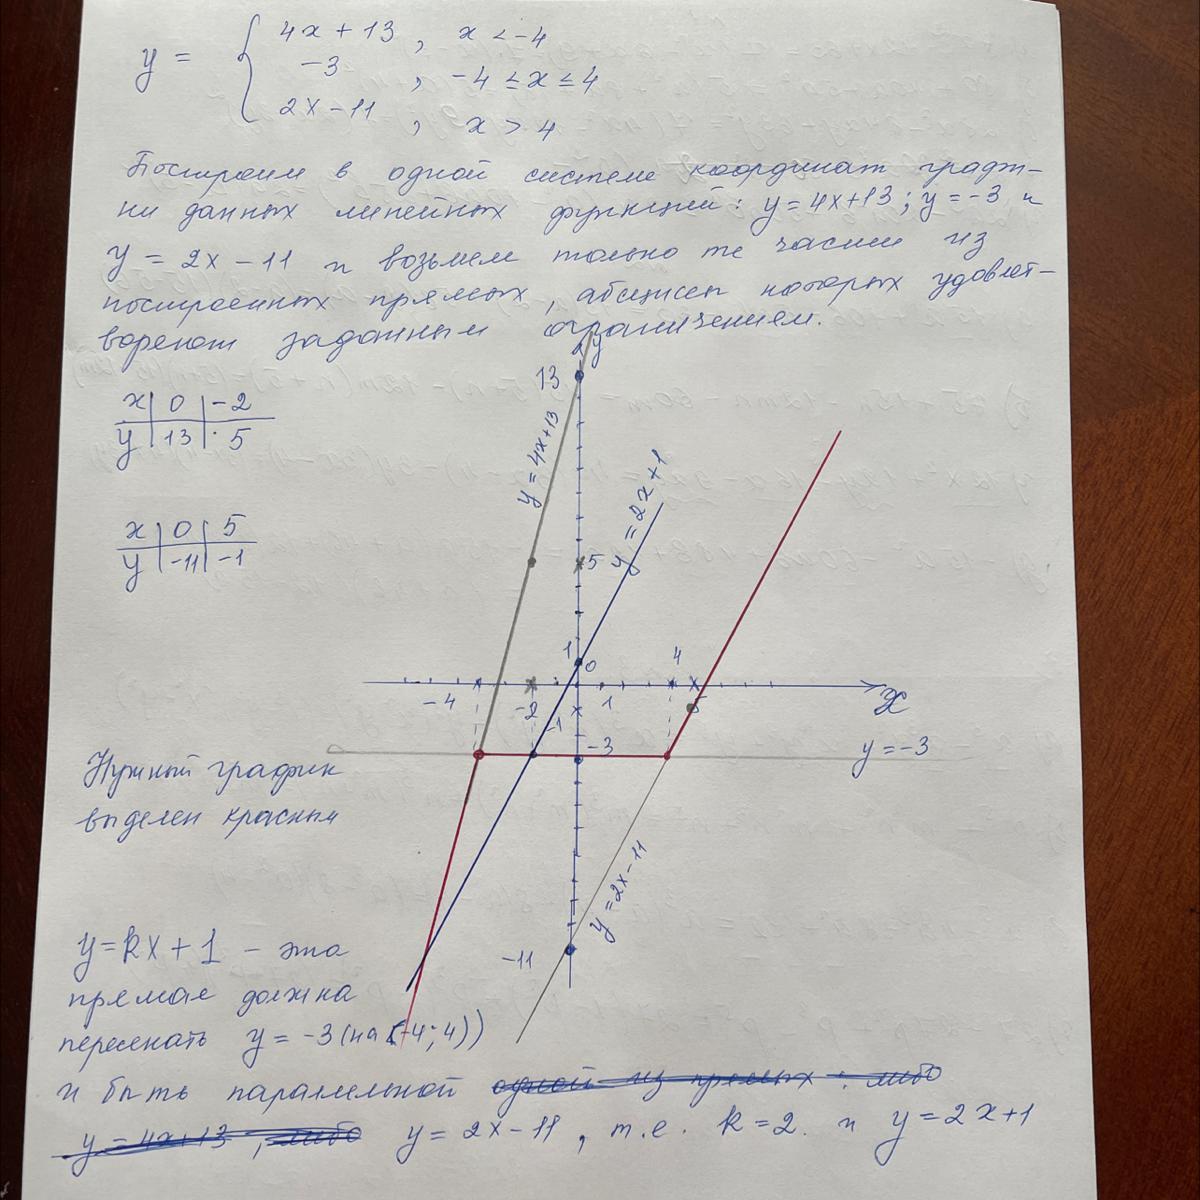 y = { 4x + 13 , x < -4
-3 , -4 ≤ x ≤ 4
2x - 11 , x > 4
Построим в одной системе координат графи-
ки данных линейных функций: y = 4x+13; y = -3 и
y = 2x - 11 и возьмем только те части из
построенных прямых, абсциссы которых удовлет-
воряют заданным ограничением.
x | 0 | -2
y | 13 | 5
x | 0 | 5
y | -11 | -1
y
13
y = 4x+13
y = 2x+1
5
1
0
4
-4
-2
-1
1
5
x
-3
y = -3
y = 2x - 11
-11
Нужный график
выделен красным
y = kx + 1 - эта
прямая должна
пересекать y = -3 (на (-4; 4))
и быть параллельной одной из прямых: либо
y = 4x+13, либо y = 2x - 11, т.е. k = 2 и y = 2x+1